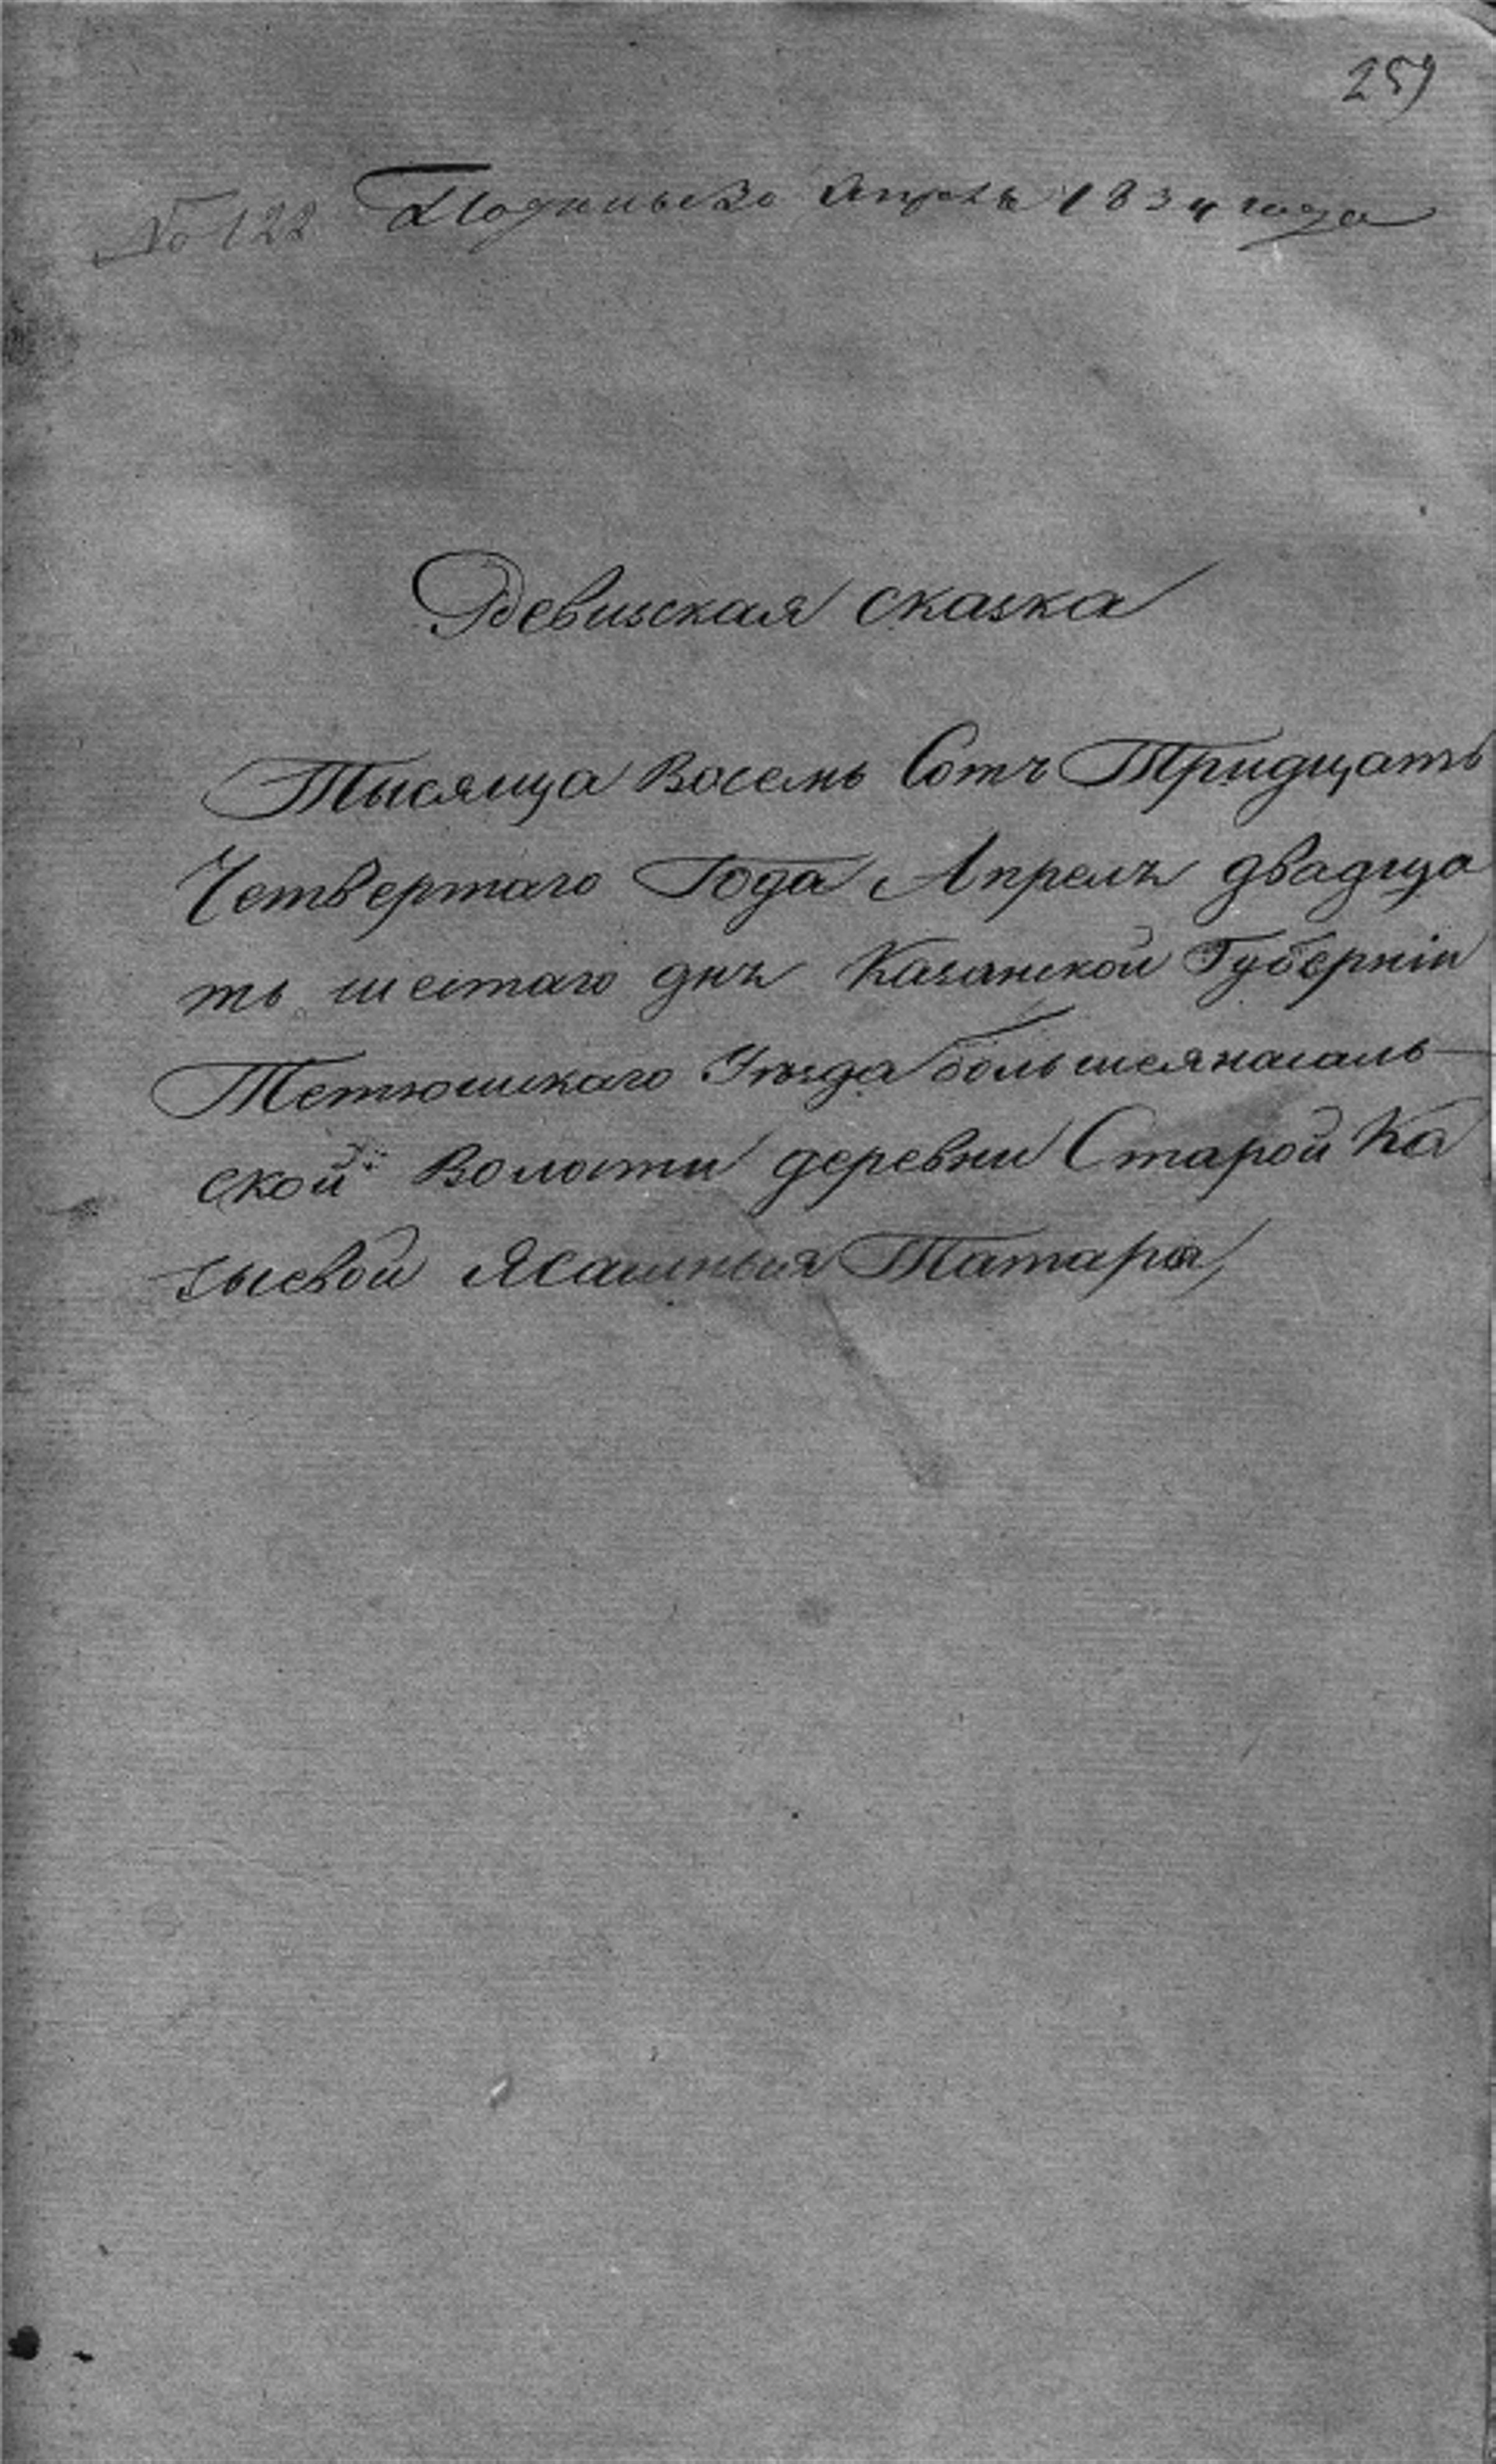 259
№ 122 Апреля 1834 года
Ревизская сказка
Тысяща Восемь Сотъ Тридцать
Четвертаго Года Апреля двадца
ть шестаго дня Казанской Губерніи
Тетюшскаго Уѣзда большеянасаль
ской Волости деревни Старой Ка
зыевой Ясашныя Татары